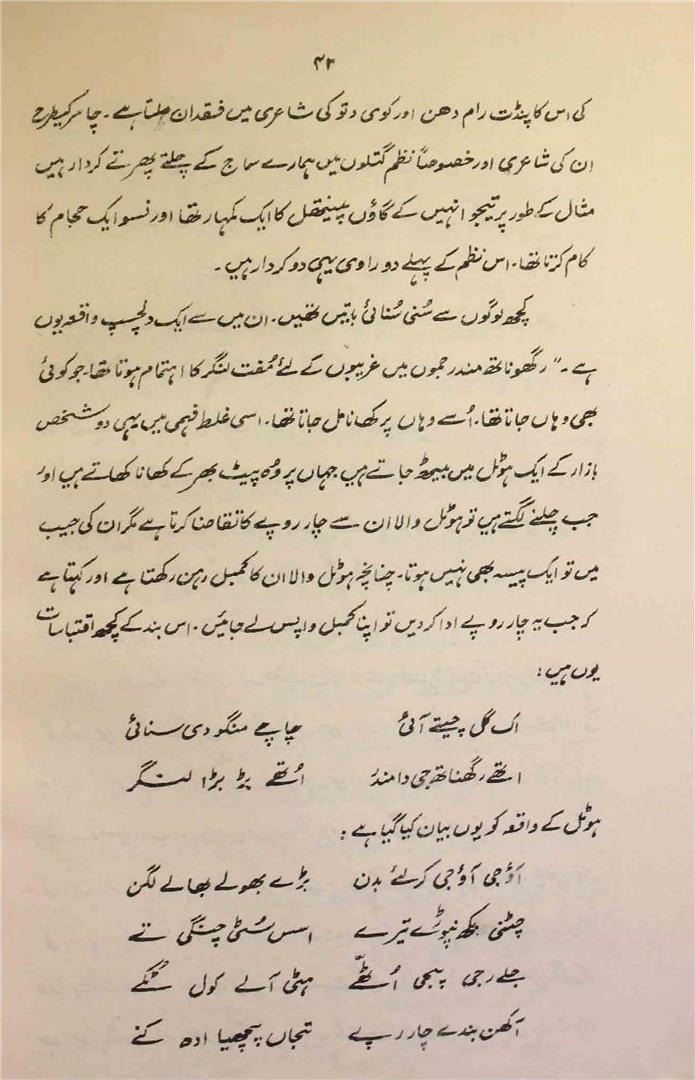 ۴۲
کی اس کا پنڈت رام دھن اور کوی دتو کی شاعری میں فقدان ملتا ہے۔ چامر کیطرح
ان کی شاعری اور خصوصاً نظم گتلوں میں ہمارے سماج کے چلتے پھرتے کردار ہیں
مثال کے طور پر تیجو انہیں کے گاؤں پینتھل کا ایک کمہار تھا اور نسو ایک حجام کا
کام کرتا تھا۔ اس نظم کے پہلے دو راوی یہی دو کردار ہیں۔
کچھ لوگوں سے سُنی سُنائی باتیں تھیں۔ ان میں سے ایک دلچسپ واقعہ یوں
ہے۔" رگھوناتھ مندر جموں میں غریبوں کے لئے مُفت لنگر کا اہتمام ہوتا تھا۔ جو کوئی
بھی وہاں جاتا تھا۔ اُسے وہاں پر کھانا مل جاتا تھا۔ اسی غلط فہمی میں یہی دو شخص
بازار کے ایک ہوٹل میں بیٹھ جاتے ہیں جہاں پر وُہ پیٹ بھر کے کھانا کھاتے ہیں اور
جب چلنے لگتے ہیں تو ہوٹل والا ان سے چار روپے کا تقاضا کرتا ہے مگر ان کی جیب
میں تو ایک پیسہ بھی نہیں ہوتا۔ چنانچہ ہوٹل والا ان کا کمبل رہن رکھتا ہے اور کہتا ہے
کہ جب یہ چار روپے ادا کر دیں تو اپنا کمبل واپس لے جائیں۔ اس بند کے کچھ اقتباسات
یوں ہیں:
اک گل چیتے آئی چاچے منگو دی سنائی
اتھے رگھناتھ جی دا مندر اُتھے بڑ بڑا لنگر
ہوٹل کے واقعہ کو یوں بیان کیا گیا ہے:
آؤ جی آؤ جی کرلئے بدن بڑے بھولے بھالے لگن
چٹنی مکھ نپوڑے تیرے اسس سُٹی چنگی تے
جلے رجی پیجی اُٹھے ہٹی آلے کول
آکھن بندے چار رپے تجاں پچھیا ادہ کنے